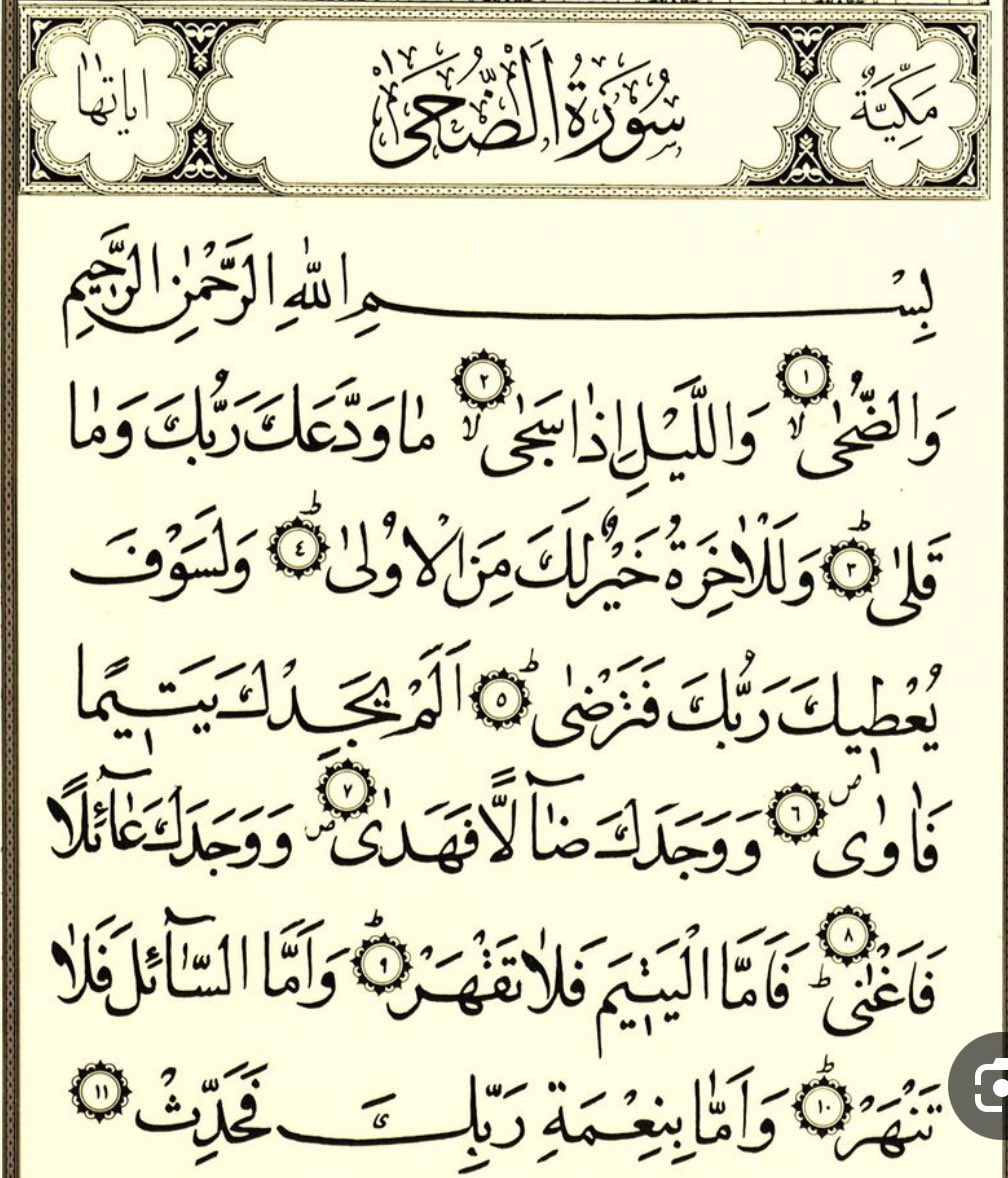 مَكِّيَّةٌ سُورَةُ الضُّحَىٰ اٰيَاتُهَا ١١
بِسْمِ اللّٰهِ الرَّحْمٰنِ الرَّحِيمِ
وَالضُّحٰىۙ ١ وَالَّيْلِ اِذَا سَجٰىۙ ٢ مَا وَدَّعَكَ رَبُّكَ وَمَا
قَلٰىۜ ٣ وَلَلْاٰخِرَةُ خَيْرٌ لَكَ مِنَ الْاُو۫لٰىۜ ٤ وَلَسَوْفَ
يُعْطٖيكَ رَبُّكَ فَتَرْضٰىۜ ٥ اَلَمْ يَجِدْكَ يَتٖيمًا
فَاٰوٰىۖ ٦ وَوَجَدَكَ ضَٓالًّا فَهَدٰىۖ ٧ وَوَجَدَكَ عَٓائِلًا
فَاَغْنٰىۜ ٨ فَاَمَّا الْيَتٖيمَ فَلَا تَقْهَرْۜ ٩ وَاَمَّا السَّٓائِلَ فَلَا
تَنْهَرْۜ ١٠ وَاَمَّا بِنِعْمَةِ رَبِّكَ فَحَدِّثْ ١١